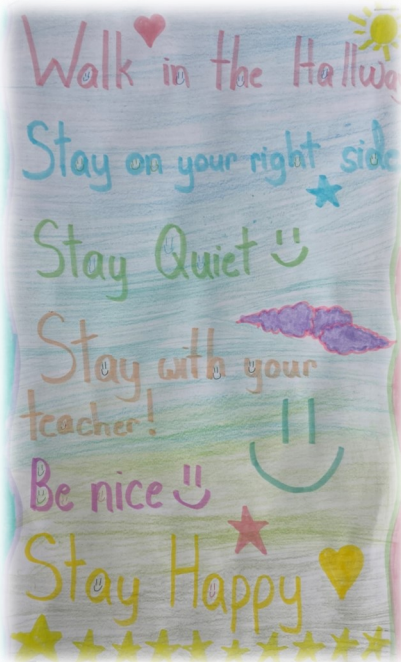 Walk in the Hallwa
Stay on your right side
Stay Quiet
Stay with your
teacher!
Be nice
Stay Happy